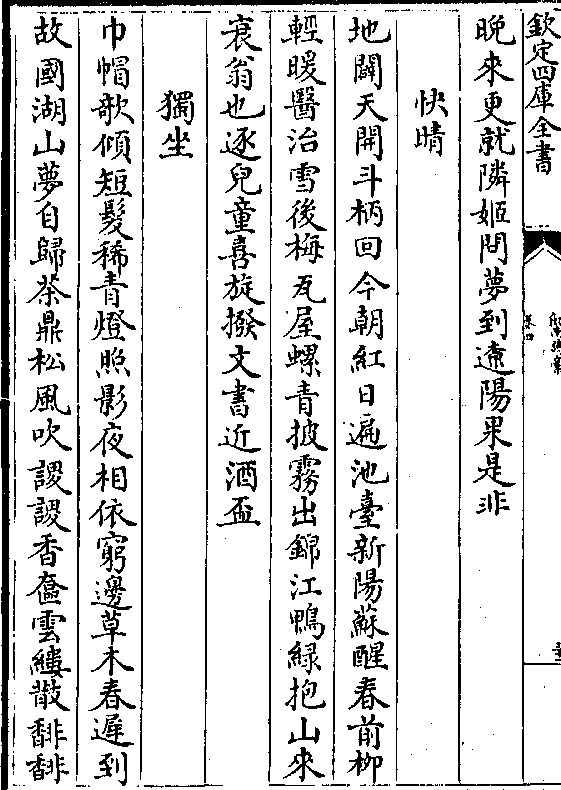 欽定四庫全書
晚來更就隣姬問夢到遼陽果是非
快晴
地闢天開斗柄回今朝紅日遍池臺新陽蘇醒春前柳
輕暖醫治雪後梅瓦屋螺青披霧出錦江鴨緑抱山來
衰翁也逐兒童喜旋撥文書近酒盃
獨坐
巾帽欹傾短髮稀青燈照影夜相依窮邊草木春遲到
故國湖山夢自歸茶鼎松風吹謖謖香奩雲縷散馡馡